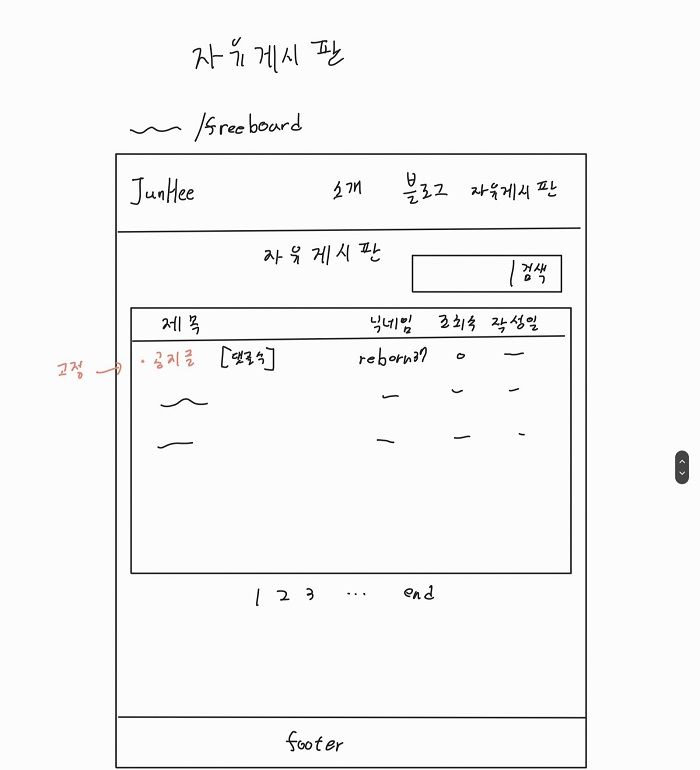 자유게시판
/freeboard
JunHee 소개 블로그 자유게시판
자유게시판
검색
제목 닉네임 조회수 작성일
고정
· 공지글 [댓글수] reborn37 0
1 2 3 ... end
footer